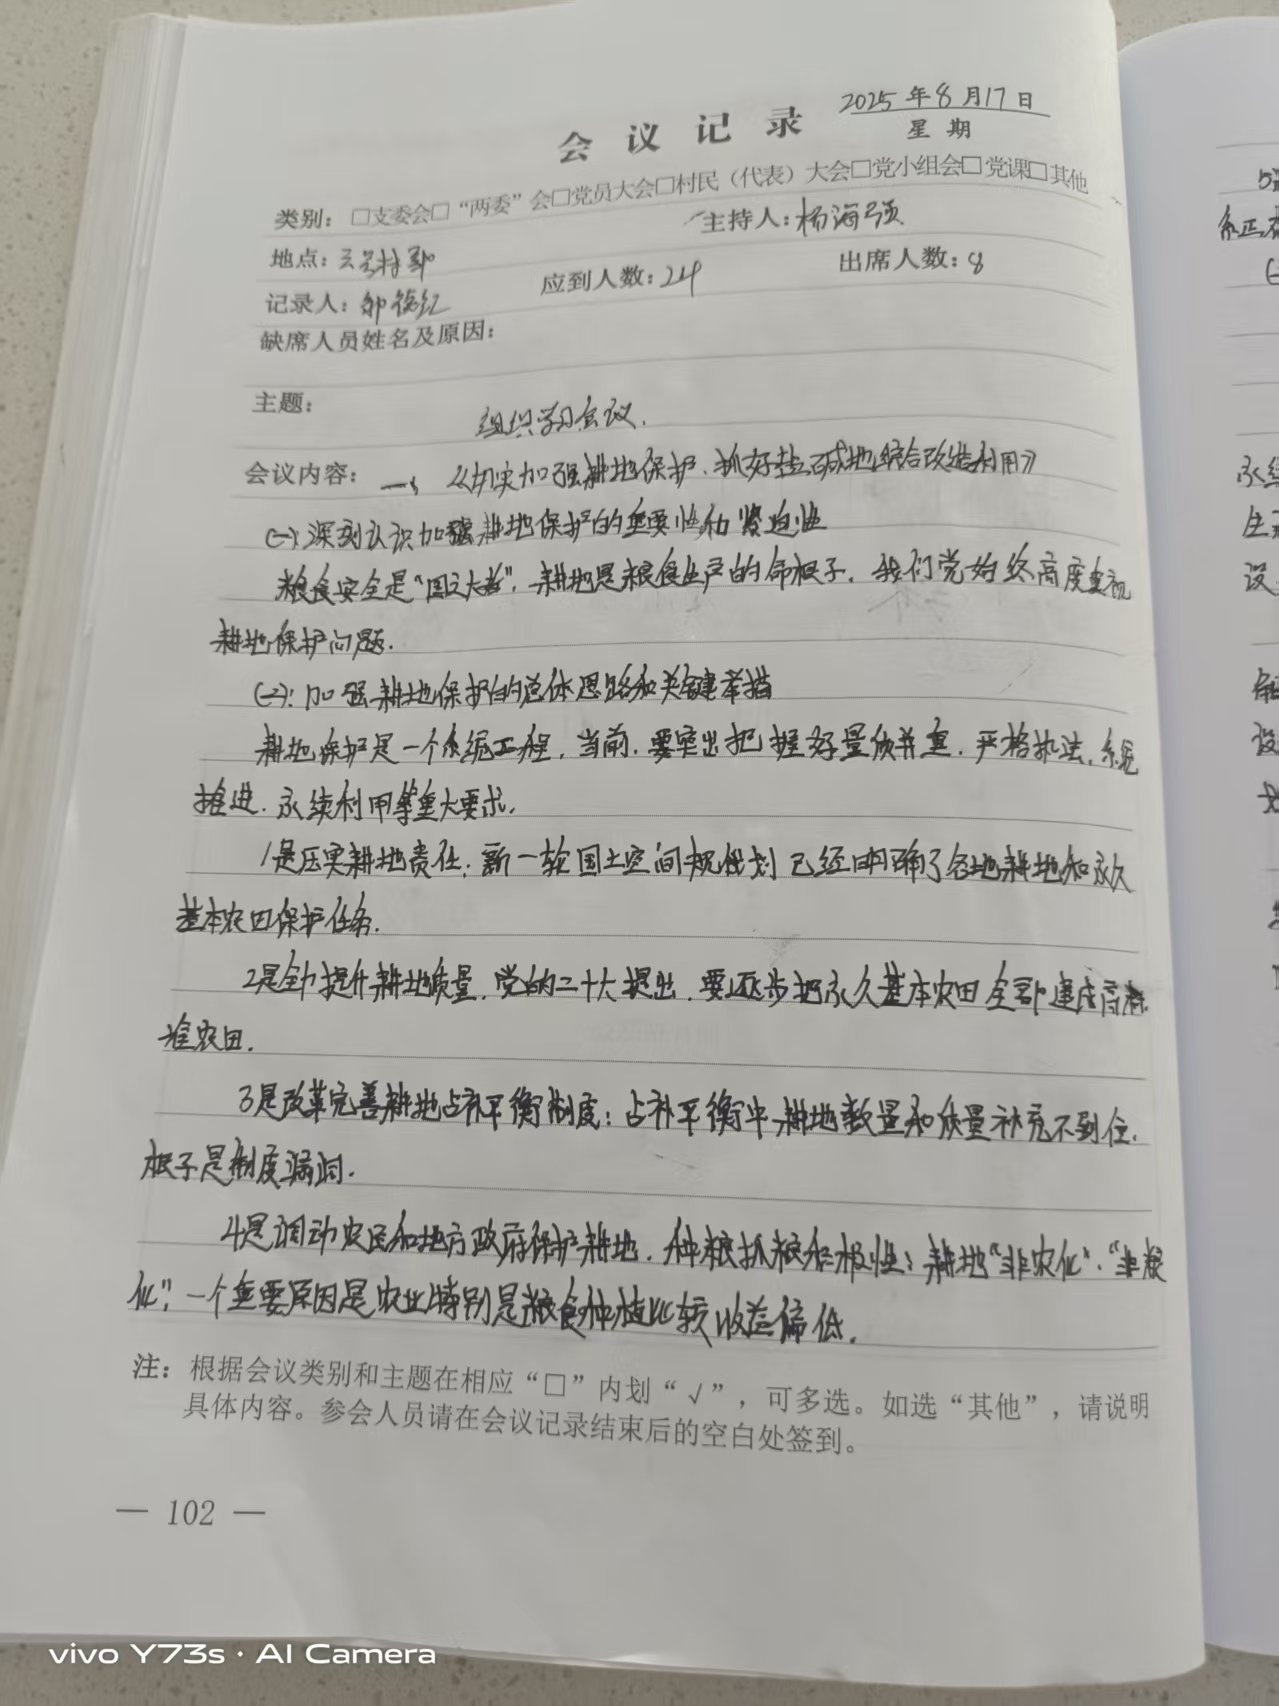 会议记录 2025年8月17日
星期
类别：□支委会□“两委”会□党员大会□村民（代表）大会□党小组会□党课□其他
地点： 村部 主持人：杨海强
记录人：邹德红 应到人数：24 出席人数：8
缺席人员姓名及原因：
主题：
组织学习会议.
会议内容：一、《切实加强耕地保护、抓好盐碱地综合改造利用》
(一)：深刻认识加强耕地保护的重要性和紧迫性
粮食安全是“国之大者”，耕地是粮食生产的命根子，我们党始终高度重视
耕地保护问题.
(二)：加强耕地保护的总体思路和关键举措
耕地保护是一个系统工程，当前，要突出把握好量质并重、严格执法、系统
推进、永续利用等重大要求.
1是压实耕地责任：新一轮国土空间规划已经明确了各地耕地和永久
基本农田保护任务.
2是全力提升耕地质量，党的二十大提出，要逐步把永久基本农田全部建成高标
准农田.
3是改革完善耕地占补平衡制度：占补平衡中耕地数量和质量补充不到位，
根子是制度漏洞.
4是调动农民和地方政府保护耕地、种粮抓粮积极性：耕地“非农化”、“非粮
化”，一个重要原因是农业特别是粮食种植比较收益偏低.
注：根据会议类别和主题在相应“□”内划“√”，可多选。如选“其他”，请说明
具体内容。参会人员请在会议记录结束后的空白处签到。
— 102 —
vivo Y73s · AI Camera